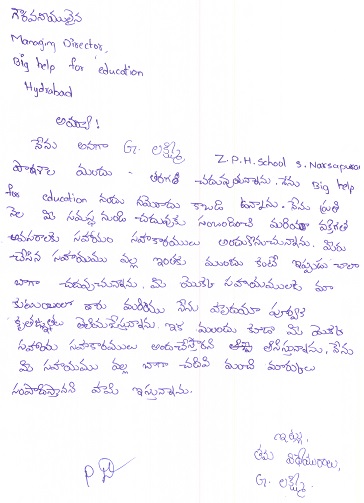 గౌరవనీయులైన
Managing Director,
Big help for education
Hydrabad
అయ్యా!
నేను అనగా G. లక్ష్మి Z.P.H. School S. Narsapuram
పాఠశాల మందు - తరగతి చదువుతున్నాను. నేను Big help
for education నందు నమోదు కాబడి ఉన్నాను. నేను ప్రతి
నెల మీ సమస్థ నుండి చదువుకు సంబంధించి మరియు వ్యక్తిగత
అవసరాలకు సహాయ సహకారములు అందుకొనుచున్నాను. మీరు
చేసిన సహాయము వల్ల ఇంతకు ముందు కంటే ఇప్పుడు చాలా
బాగా చదువుచున్నాను. మీ యొక్క సహాయములకు మా
కుటుంబంలో వారు మరియు నేను హృదయ పూర్వక
కృతజ్ఞతలు తెలియచేస్తున్నాను. ఇక ముందు కూడా మీ యొక్క
సహాయ సహకారములు అందచేస్తారని ఆశిస్తున్నాను, నేను
మీ సహాయము వల్ల బాగా చదివి మంచి మార్కులు
సంపాదిస్తానని హామి ఇస్తున్నాను.
ఇట్లు,
తమ విధేయురాలు,
G. లక్ష్మి.